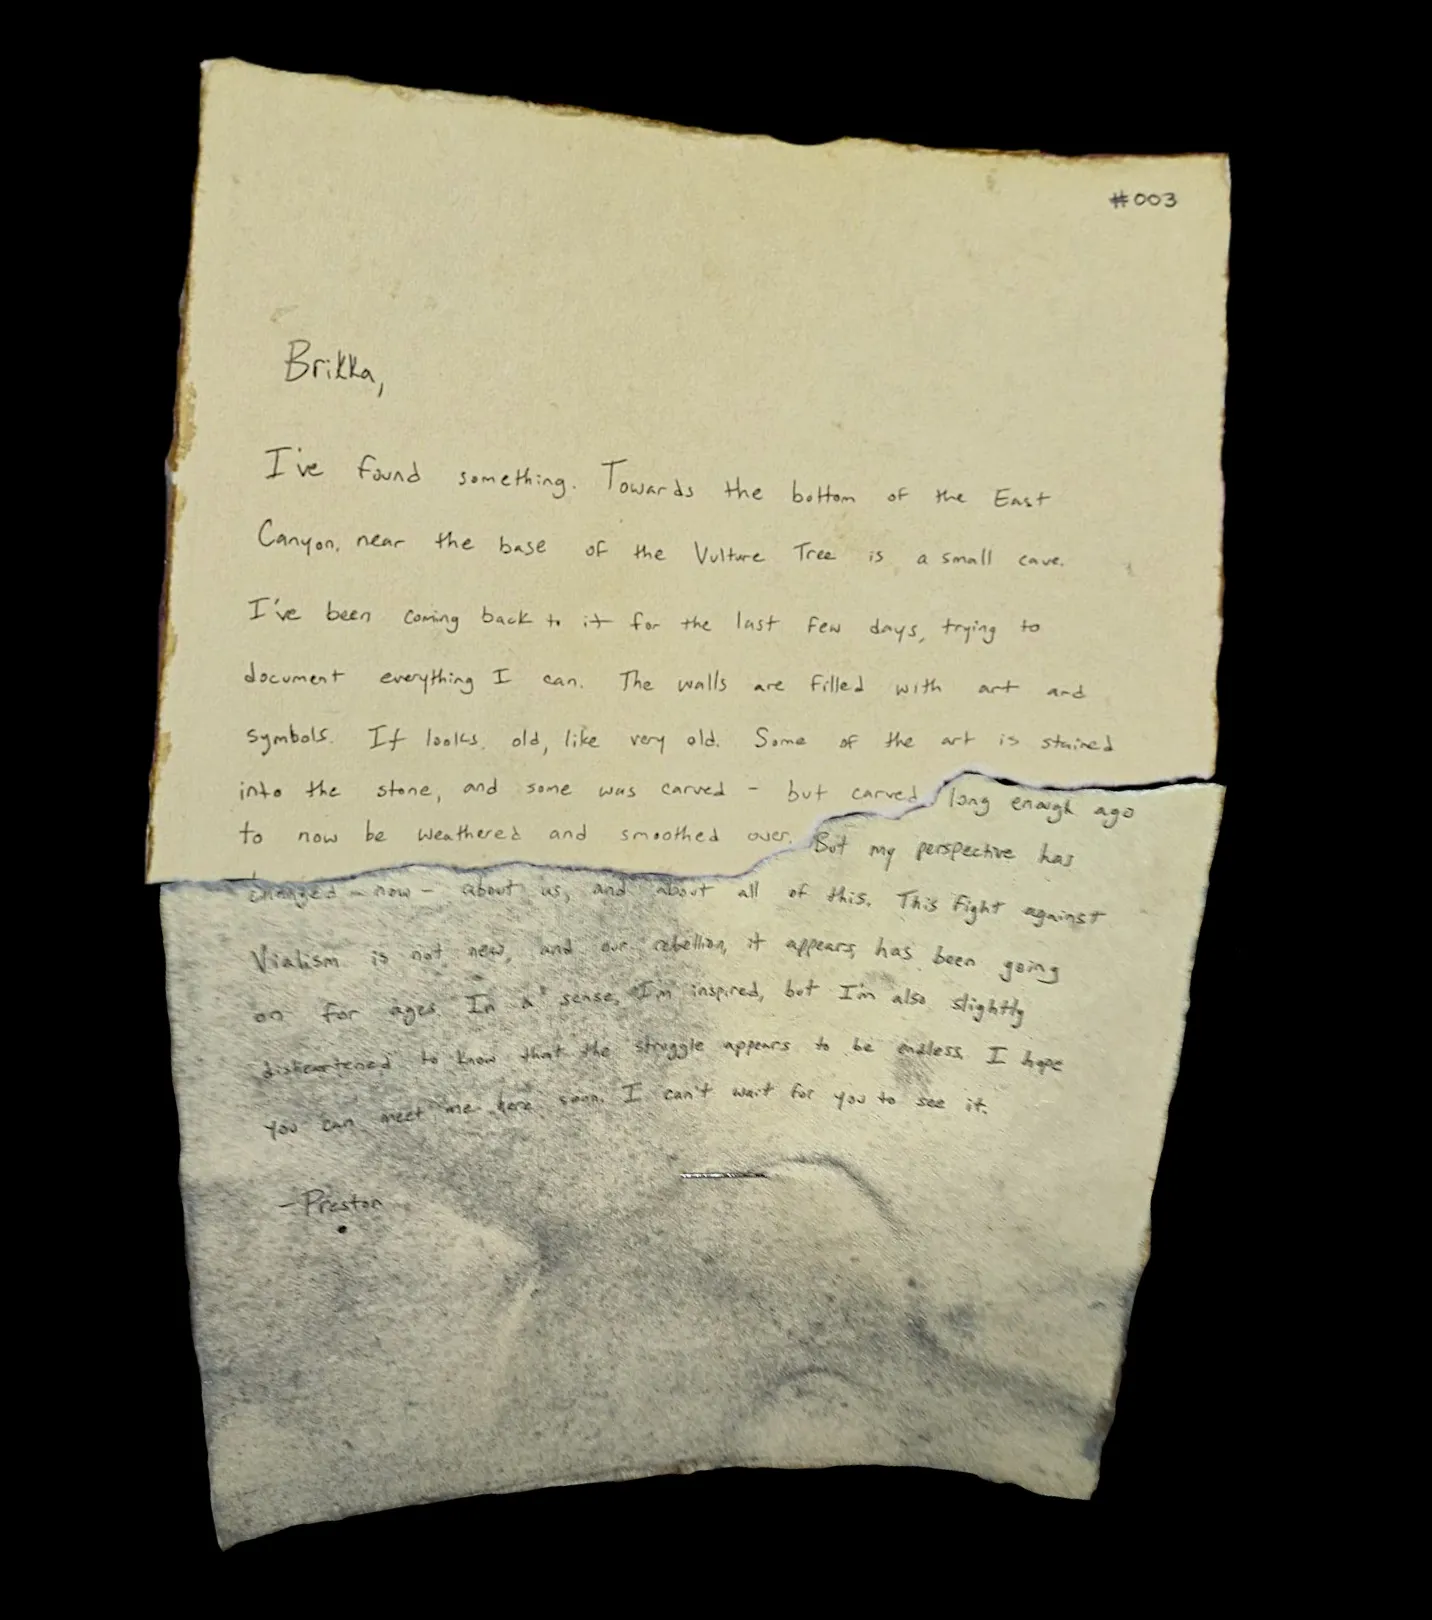 #003
Brikka,
I've found something. Towards the bottom of the East
Canyon, near the base of the Vulture Tree is a small cave.
I've been coming back to it for the last few days, trying to
document everything I can. The walls are filled with art and
symbols. It looks, old, like very old. Some of the art is stained
into the stone, and some was carved - but carved long enough ago
to now be weathered and smoothed over. But my perspective has
changed - now - about us, and about all of this. This fight against
Vialism is not new, and our rebellion, it appears, has been going
on for ages. In a sense, I'm inspired, but I'm also slightly
disheartened to know that the struggle appears to be endless. I hope
you can meet me here soon. I can't wait for you to see it.
- Preston